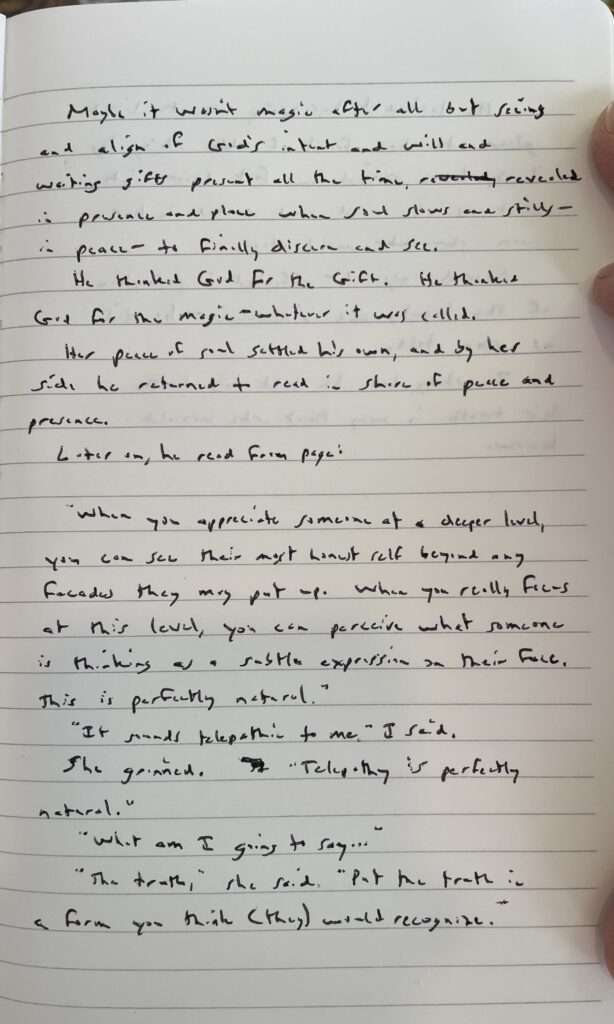 Maybe it wasn't magic after all but seeing
and align of God's intent and will and
waiting gifts present all the time, revealed
in presence and place when soul slows and stills—
in peace— to finally discern and see.
He thanked God for the Gift. He thanked
God for the magic—whatever it was called.
Her peace of soul settled his own, and by her
side he returned to read in share of peace and
presence.
Later on, he read from page:
"When you appreciate someone at a deeper level,
you can see their most honest self beyond any
facades they may put up. When you really focus
at this level, you can perceive what someone
is thinking as a subtle expression on their face.
This is perfectly natural."
"It sounds telepathic to me," I said.
She grinned. "Telepathy is perfectly
natural."
"What am I going to say..."
"The truth," she said. "Put the truth in
a form you think (they) would recognize."